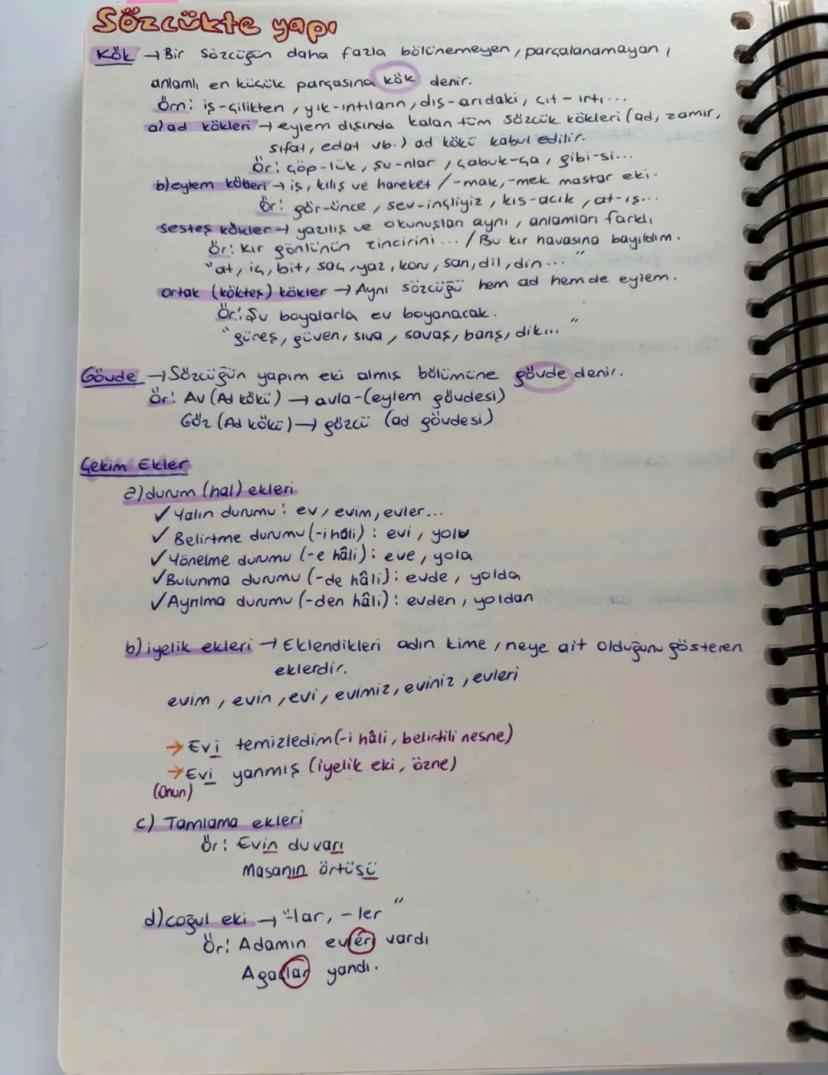 Sözcükte yapı
Kök → Bir sözcüğün daha fazla bölünemeyen, parçalanamayan,
anlamlı en küçük parçasına kök denir.
Örn: iş-çilikten, yık-ıntıların, dış-arıdaki, çıt-ırtı...
a) ad kökleri → eylem dışında kalan tüm sözcük kökleri (ad, zamir,
sıfat, edat vb.) ad kökü kabul edilir.
Ör: çöp-lük, şu-nlar, çabuk-ça, gibi-si...
b) eylem kökeri → iş, kılış ve hareket /-mak, -mek mastar eki.
Ör: gör-ünce, sev-inçliyiz, kıs-acık, at-ış...
sesteş kökler → yazılış ve okunuşları aynı, anlamları farklı
Ör: Kır gönlünün zincirini... / Bu kır havasına bayıldım.
"at, iç, bit, saç, yaz, koru, san, dil, din... "
ortak (kökteş) kökler → Aynı sözcüğü hem ad hemde eylem.
Ör: Şu boyalarla ev boyanacak.
"güreş, güven, sıva, savaş, barış, dik... "
Gövde → Sözcüğün yapım eki almış bölümüne gövde denir.
Ör: Av (Ad kökü) → avla- (eylem gövdesi)
Göz (Ad kökü) → gözcü (ad gövdesi)
Çekim Ekler
a) durum (hal) ekleri
✓ Yalın durumu: ev, evim, evler...
✓ Belirtme durumu (-i hâli): evi, yolu
✓ Yönelme durumu (-e hâli): eve, yola
✓ Bulunma durumu (-de hâli): evde, yolda
✓ Ayrılma durumu (-den hâli): evden, yoldan
b) iyelik ekleri → Eklendikleri adın kime, neye ait olduğunu gösteren
eklerdir.
evim, evin, evi, evimiz, eviniz, evleri
→ Evi temizledim (-i hâli, belirtili nesne)
→ Evi yanmış (iyelik eki, özne)
(Onun)
c) Tamlama ekleri
Ör: Evin duvarı
Masanın örtüsü
d) çoğul eki → "-lar, -ler "
Ör: Adamın evler vardı
Agaclar yandı.